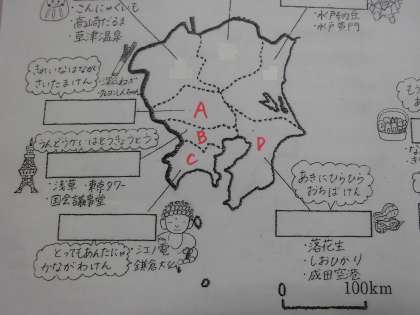 ・こんにゃくいも
・高崎だるま
・草津温泉
・水戸納豆
・水戸黄門
きれいなはなが
さいたまけん
A
うんどうかいはとうきょうとう
B
・浅草・東京タワー
・国会議事堂
C
D
あきにひらひら
おちばけん
とってもあんたにゃ
かながわけん
・江ノ電
・鎌倉大仏
・落花生
・しおひがり
・成田空港
0
100km